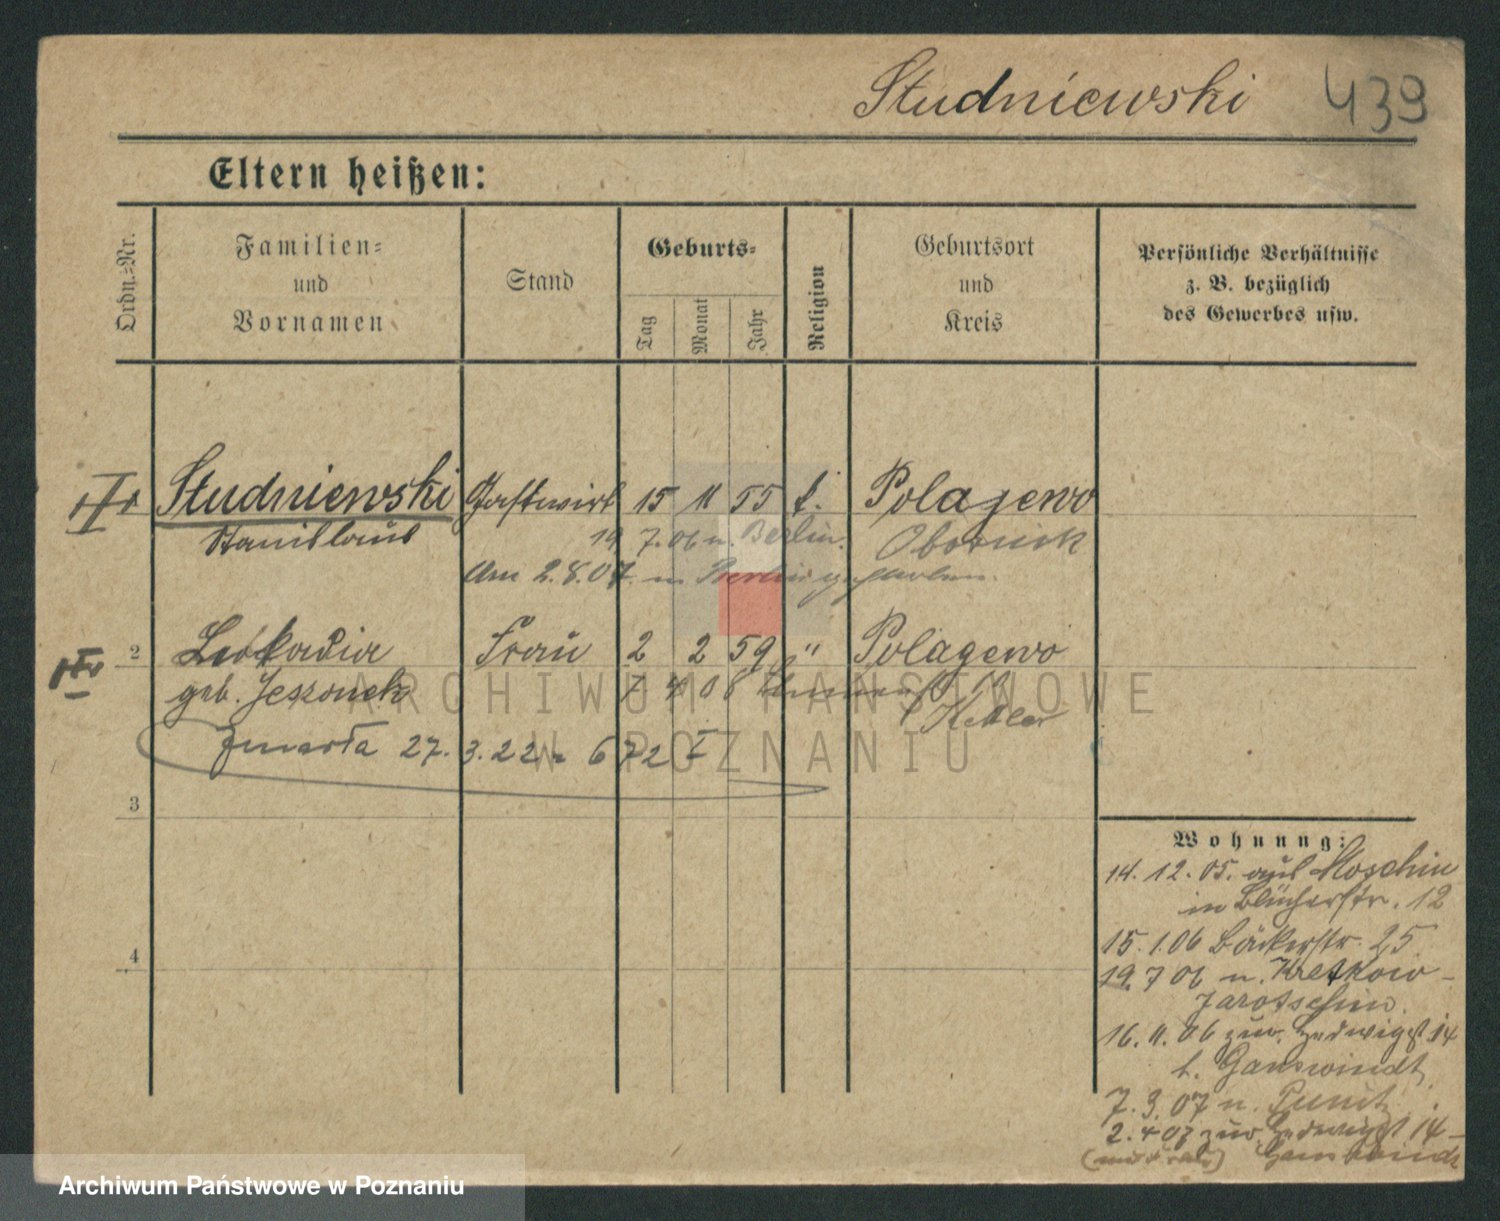 Studniewski 439
Eltern heißen:
Ordn.=Nr.
Familien=
und
Vornamen
Stand
Geburts=
Tag
Monat
Jahr
Religion
Geburtsort
und
Kreis
Persönliche Verhältnisse
z. B. bezüglich
des Gewerbes usw.
Studniewski Gastwirt 15 11 55 k. Polajewo
Stanislaus 19 7. 06 n. Berlin. Obornik
Am 2.8.07. in Berlin gestorben.
2 Leokadia Frau 2 2 59 " Polagewo
geb. Jeszonek 7 4 08
Zmarła 27.3.22 672 I
ARCHIWUM PAŃSTWOWE
W POZNANIU
3
4
Wohnung:
14. 12. 05. aus Moschin
in Blücherstr. 12
15. 1. 06 Bäckerstr. 25
19. 7 06 n. Kretkow
Jarotschin.
16. 11. 06 zur. Hedwigst 14
b. Ganswindt
7. 3. 07 n.
2. 4 07 zur. Hedwigst 14
Ganswindt
Archiwum Państwowe w Poznaniu